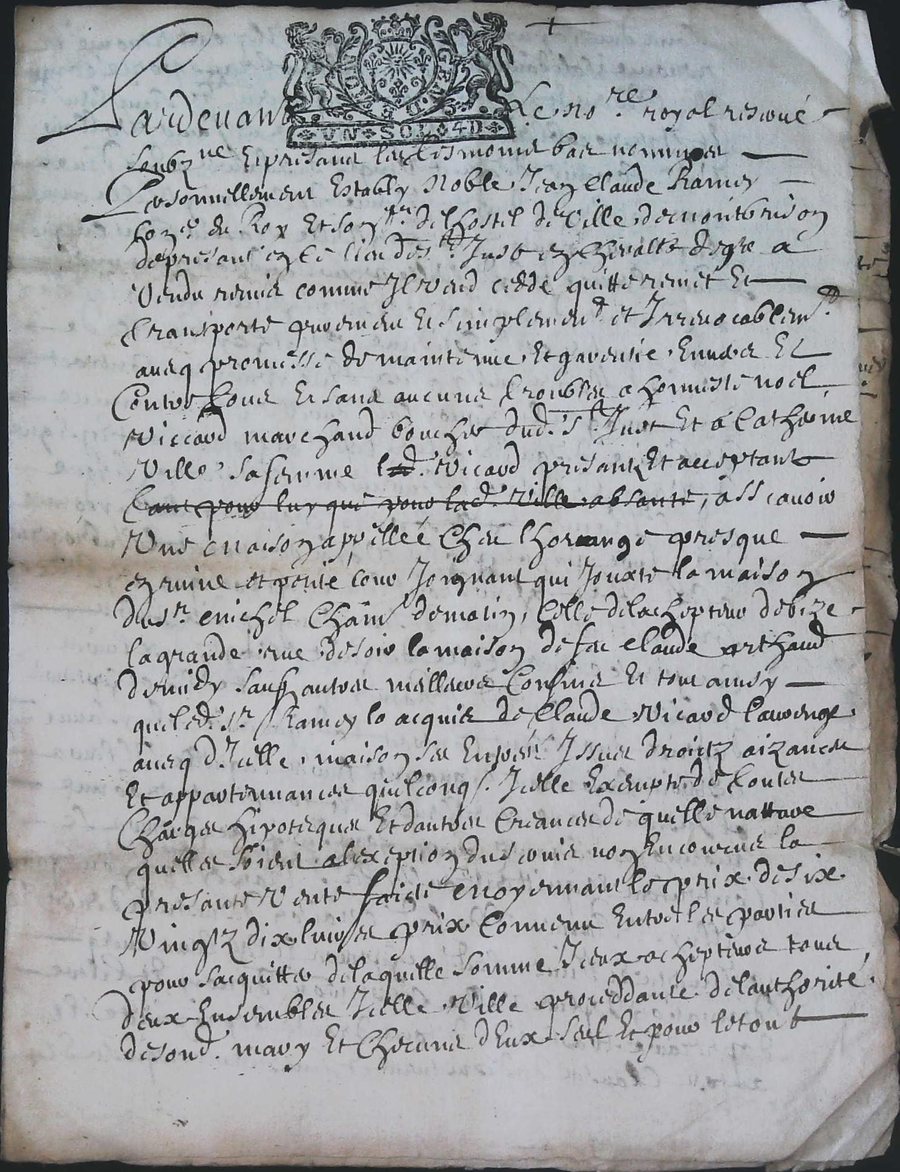 GEN DE
VN SOL 4D
Pardevant Le no.re royal reservé
soubz.ne Et presans les tesmoins bas nommes
Personnellement Estably Noble Jean Claude Ramey
du Roy Et son de lhostel de Ville de montbrison
de presant en ce lieu de s.t Just en Chevallet a
Vendu remis comme Il Vend cedde quitte remet Et
transporte purement Et simplement et Irrevocablem.t
avec promesse de maintenir Et garentie Envers Et
Contre tous Et sans aucuns troubles a honneste noel
Viccard marchand boucher dud. s.t Just Et a Catherine
Ville sa femme led. Vicard presant Et acceptant
tant pour luy que pour lad. Ville absante, assçavoir
Une maison appellée Chez presque
en ruine et petite cour Joignant qui Jouxte la maison
du s.r michel de matin, Celle de la de bize
la grande rue de soir la maison de feu Claude arthaud
de midy sauf autres meilleurs Confins Et tout ainsy
que led. s.r Ramey la acquis de Claude Vicard
avecq d'Icelle maison ses Entrées Issues droitz aizances
Et appartenances quelconq. Icelle Exempte de toutes
Charges hipoteques Et dautres Creances de quelle nature
quelles soient a lexeption du servis non Encourus la
presante Vente faicte moyennant le prix de six
Vingtz dix livres prix Convenu Entre les parties
pour sacquitter de laquelle somme Iceux achepteurs tous
deux Ensembles Icelle Ville proceddante de lauthorité
de sond. mary Et Checuns d'Eux seul Et pour le tout